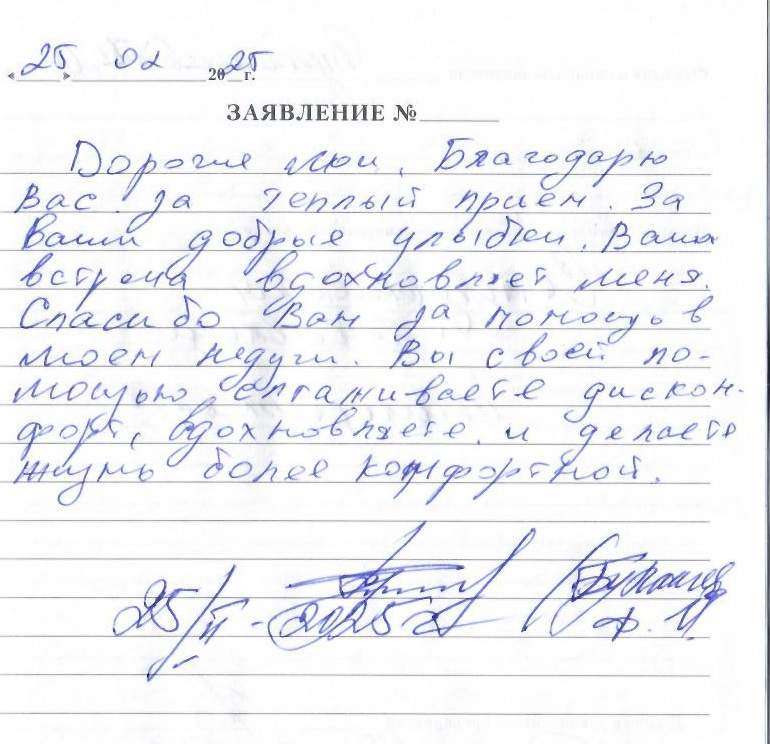 « 25 » 02 20 25 г.
ЗАЯВЛЕНИЕ №
Дорогие мои. Благодарю
Вас за теплый прием. За
Ваши добрые улыбки. Ваша
встреча вдохновляет меня.
Спасибо Вам за помощь в
моем недуги. Вы своей по-
мощью сглаживаете диском-
форт, вдохновляете и делаете
жизнь более комфортной.
25/II - 2025 г.
Ф. И.